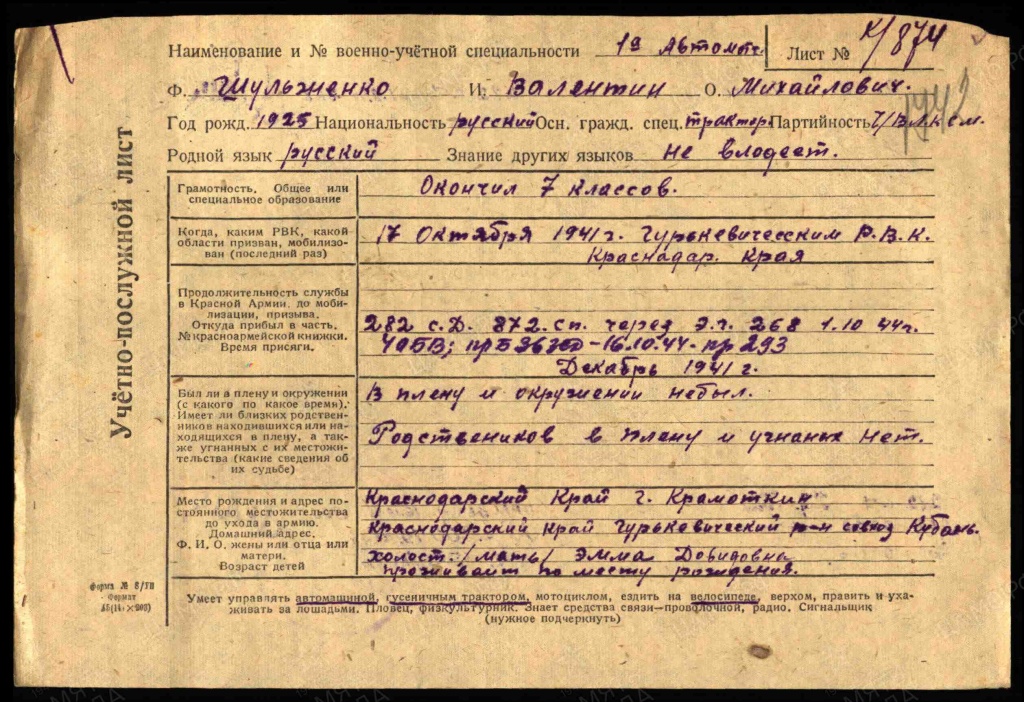 Наименование и № военно-учётной специальности 1а Автомат. Лист № К/874
1942
Ф. Шульженко И. Валентин О. Михайлович.
Год рожд. 1925 Национальность русский Осн. гражд. спец. трактор. Партийность Ч/ВЛКСМ.
Родной язык русский Знание других языков не влодеет.
Учётно-послужной лист
Грамотность. Общее или специальное образование
Окончил 7 классов.
Когда, каким РВК, какой области призван, мобилизован (последний раз)
17 Октября 1941 г. Гурькевичесским Р.В.К.
Краснадар. Края
Продолжительность службы
в Красной Армии, до мобилизации, призыва.
Откуда прибыл в часть.
№ красноармейской книжки.
Время присяги.
282 с.д. 872. сп. через Э.г. 268 1.10 44г.
16.10.44. пр 293
Декабрь 1941 г.
Был ли в плену и окружении
(с какого по какое время).
Имеет ли близких родственников находившихся или находящихся в плену, а также угнанных с их местожительства (какие сведения об их судьбе)
В плену и окружении небыл.
Родствеников в плену и угнаных нет.
Место рождения и адрес постоянного местожительства
до ухода в армию.
Домашний адрес.
Ф. И. О. жены или отца или матери.
Возраст детей
Краснодарский Край г. Крамоткин
Краснодарский край Гурькевический р-н совхоз Кубань.
холост. /мать/ Эмма Довидовна
проживайт по месту рождения.
Форма № 8/УП
Формат
Умеет управлять автомашиной, гусеничным трактором, мотоциклом, ездить на велосипеде, верхом, править и ухаживать за лошадьми. Пловец, физкультурник. Знает средства связи—проволочной, радио. Сигнальщик
(нужное подчеркнуть)